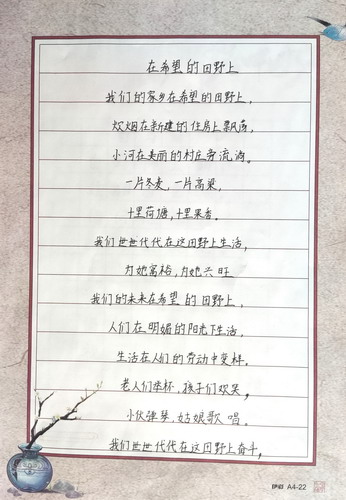 在希望的田野上
我们的家乡在希望的田野上，
炊烟在新建的住房上飘荡，
小河在美丽的村庄旁流淌。
一片冬麦，一片高粱，
十里荷塘，十里果香。
我们世世代代在这田野上生活，
为她富裕，为她兴旺
我们的未来在希望的田野上，
人们在明媚的阳光下生活，
生活在人们的劳动中变样。
老人们举杯，孩子们欢笑，
小伙弹琴，姑娘歌唱。
我们世世代代在这田野上奋斗，
A4-22